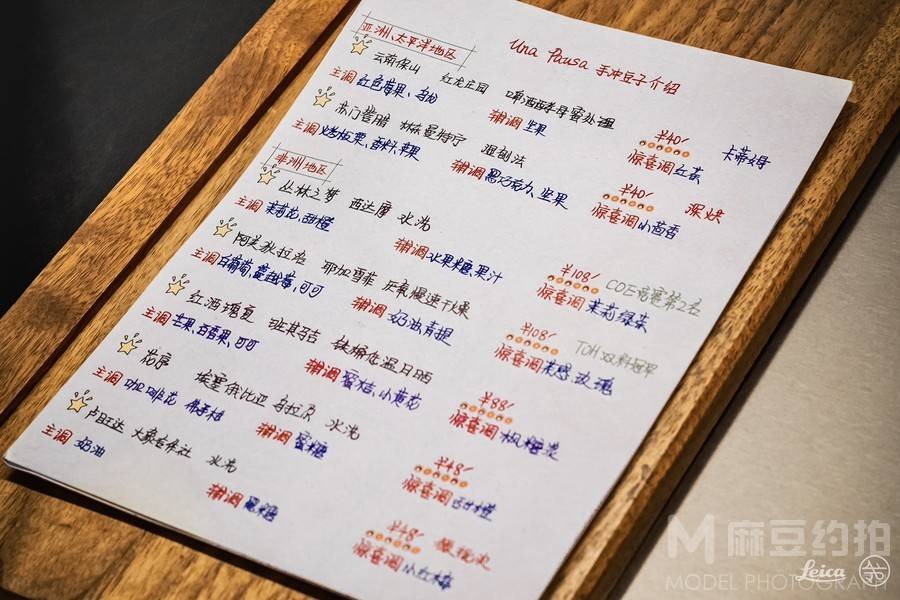 Una Pausa 手冲豆子介绍
亚洲、太平洋地区
云南保山 红龙庄园 啤酒酵母蜜处理 ¥40/ 卡蒂姆
主调 红色莓果、乌龙 辅调 坚果 惊喜调 红茶
苏门答腊 林东曼特宁 湿刨法 ¥40/ 深烘
主调 烤板栗、香料、草果 辅调 黑巧克力、坚果 惊喜调 小茴香
非洲地区
丛林之梦 西达摩 水洗 ¥108/ COE竞赛第2名
主调 茉莉花、甜橙 辅调 水果糖、果汁 惊喜调 茉莉绿茶
阿芙狄拉 耶加雪菲 厌氧慢速干燥 ¥108/ TOH 双料冠军
主调 白葡萄、蔓越莓、可可 辅调 奶油青提 惊喜调 玫瑰
红酒瑰夏 班其玛吉 低温日晒 ¥88/
主调 芒果、百香果、可可 辅调 蜜桔、小黄花 惊喜调 枫糖浆
花序 埃塞俄比亚 乌拉嘎 水洗 ¥48/
主调 咖啡花 佛手柑 辅调 蜜糖 惊喜调 甜橙
卢旺达 大象合作社 水洗 ¥48/
主调 奶油 辅调 黑糖 惊喜调 小红莓
M 麻豆约拍
MODEL PHOTOGRAPH
Leica